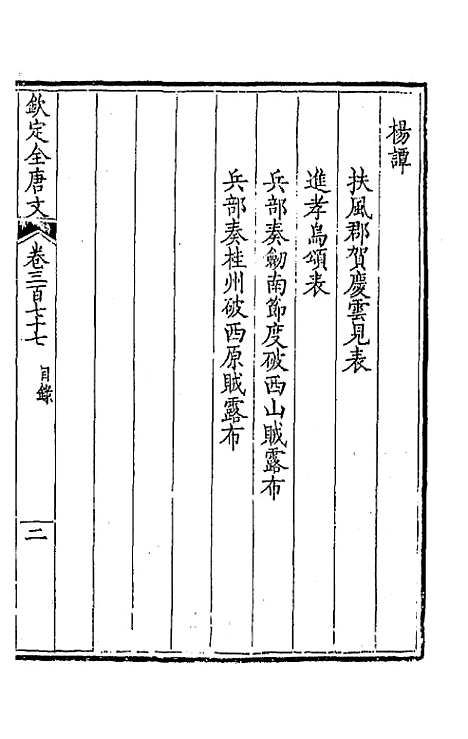 楊譚
扶風郡賀慶雲見表
進孝烏頌表
兵部奏劒南節度破西山賊露布
兵部奏桂州破西原賊露布
欽定全唐文 卷三百七十七 目錄 二